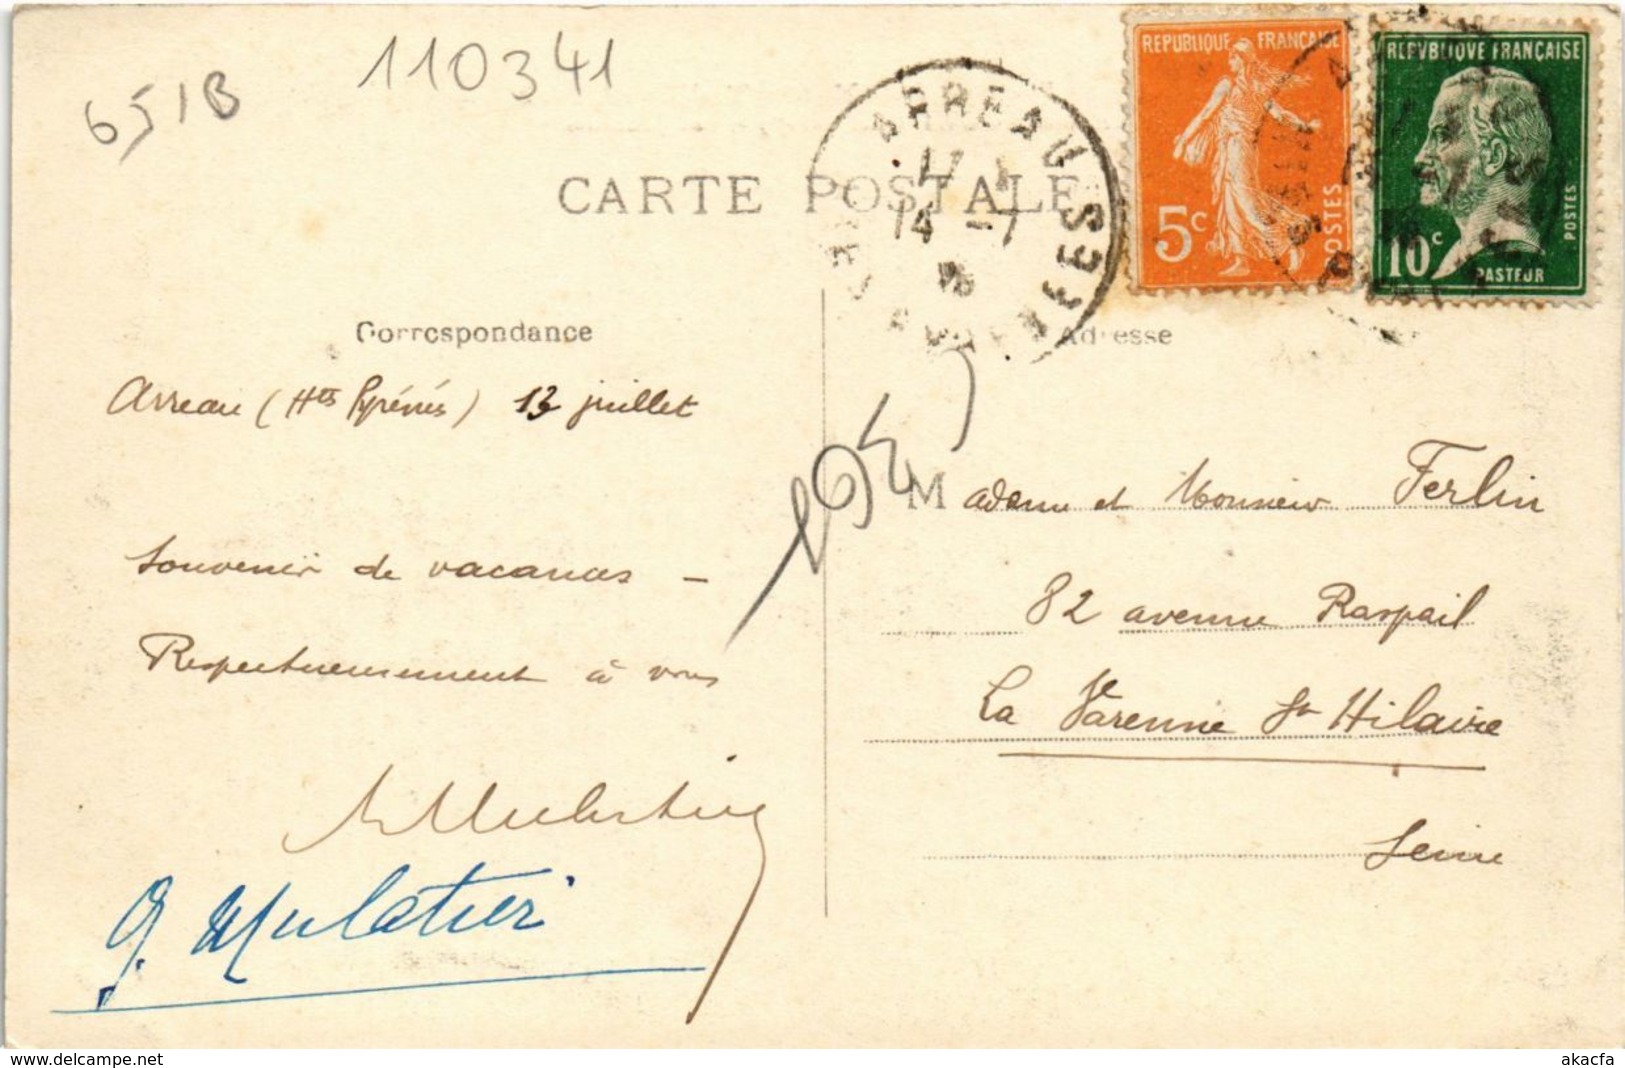 651B
110341
REPUBLIQUE FRANÇAISE
5c
POSTES
REPVBLIQVE FRANÇAISE
10c
PASTEUR
POSTES
CARTE POSTALE
ARREAU
17
14 -7
Correspondance
Adresse
Arreau (Htes Pyrénés) 13 juillet
Souvenir de vacances -
Respectueusement à vous
G. Mulatier
Madame et Monsieur Ferlin
82 avenue Raspail
La Varenne St Hilaire
Seine
www.delcampe.net
akacfa